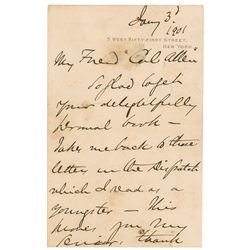 Jany 3d
5 WEST FIFTY-FIRST STREET,
1901
NEW YORK
My Friend "Col Allen"
So glad to get
your delightfully
personal book —
takes me back to those
letters in the Dispatch
which I read as a
youngster — this
thank